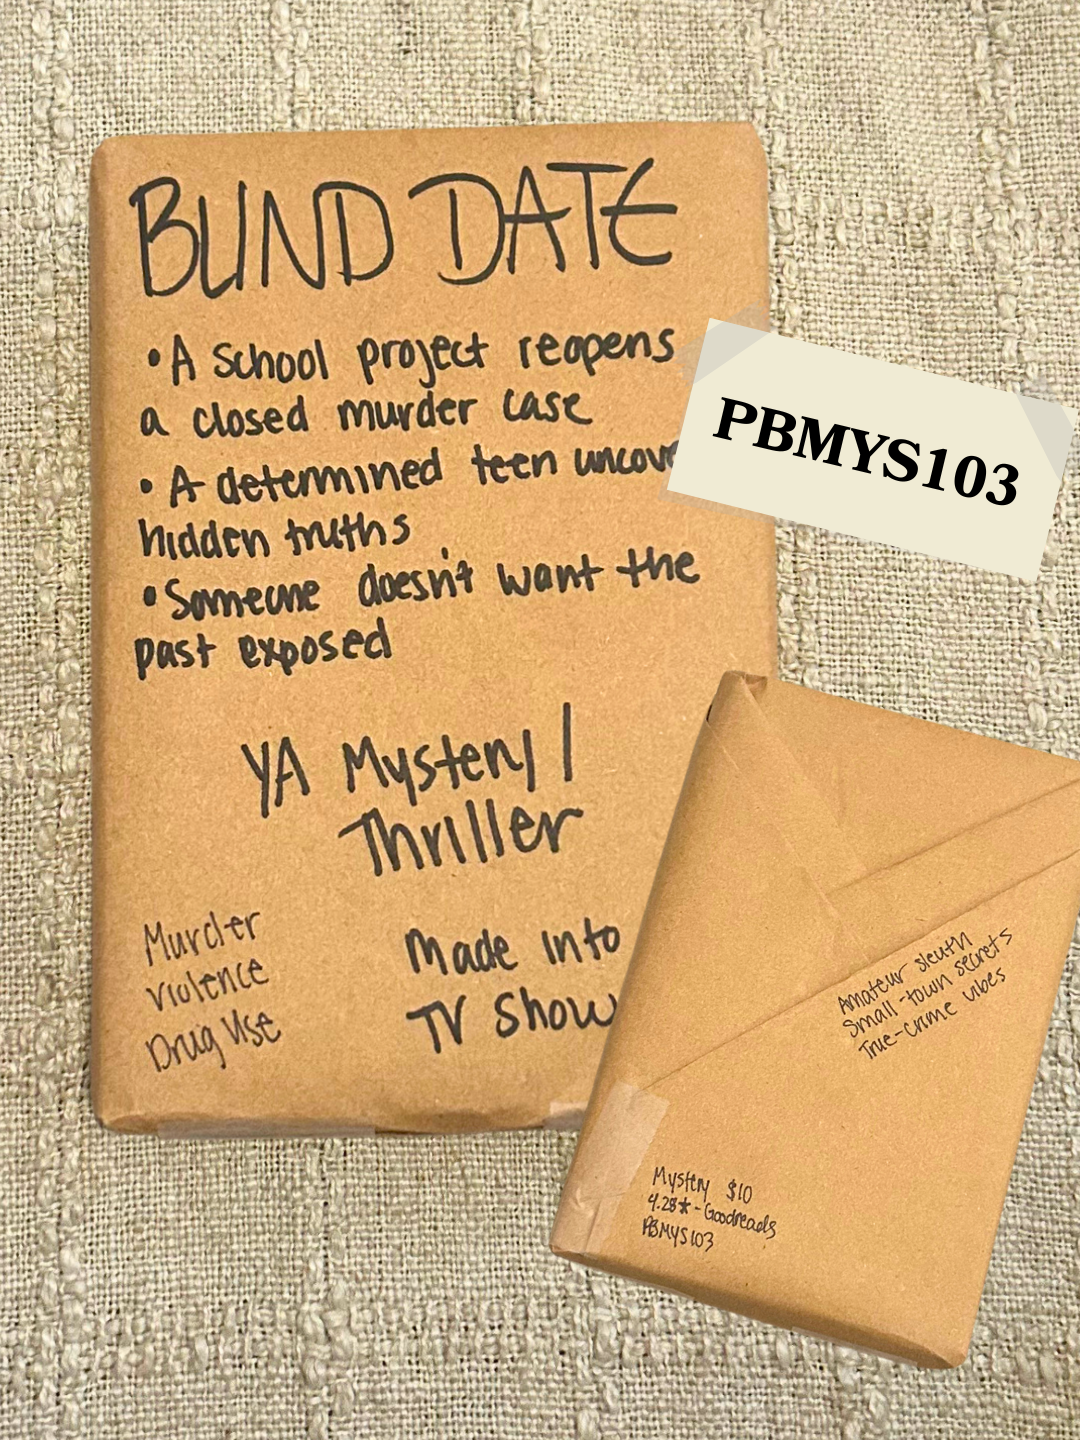 BLIND DATE
• A School project reopens
a closed murder case
• A determined teen uncove
hidden truths
• Someone doesn't want the
past exposed
YA Mystery /
Thriller
Murder
violence
Drug Use
Made into
TV Show
PBMYS103
Amateur sleuth
Small-town secrets
True-crime vibes
Mystery $10
4.28★-Goodreads
PBMYS103